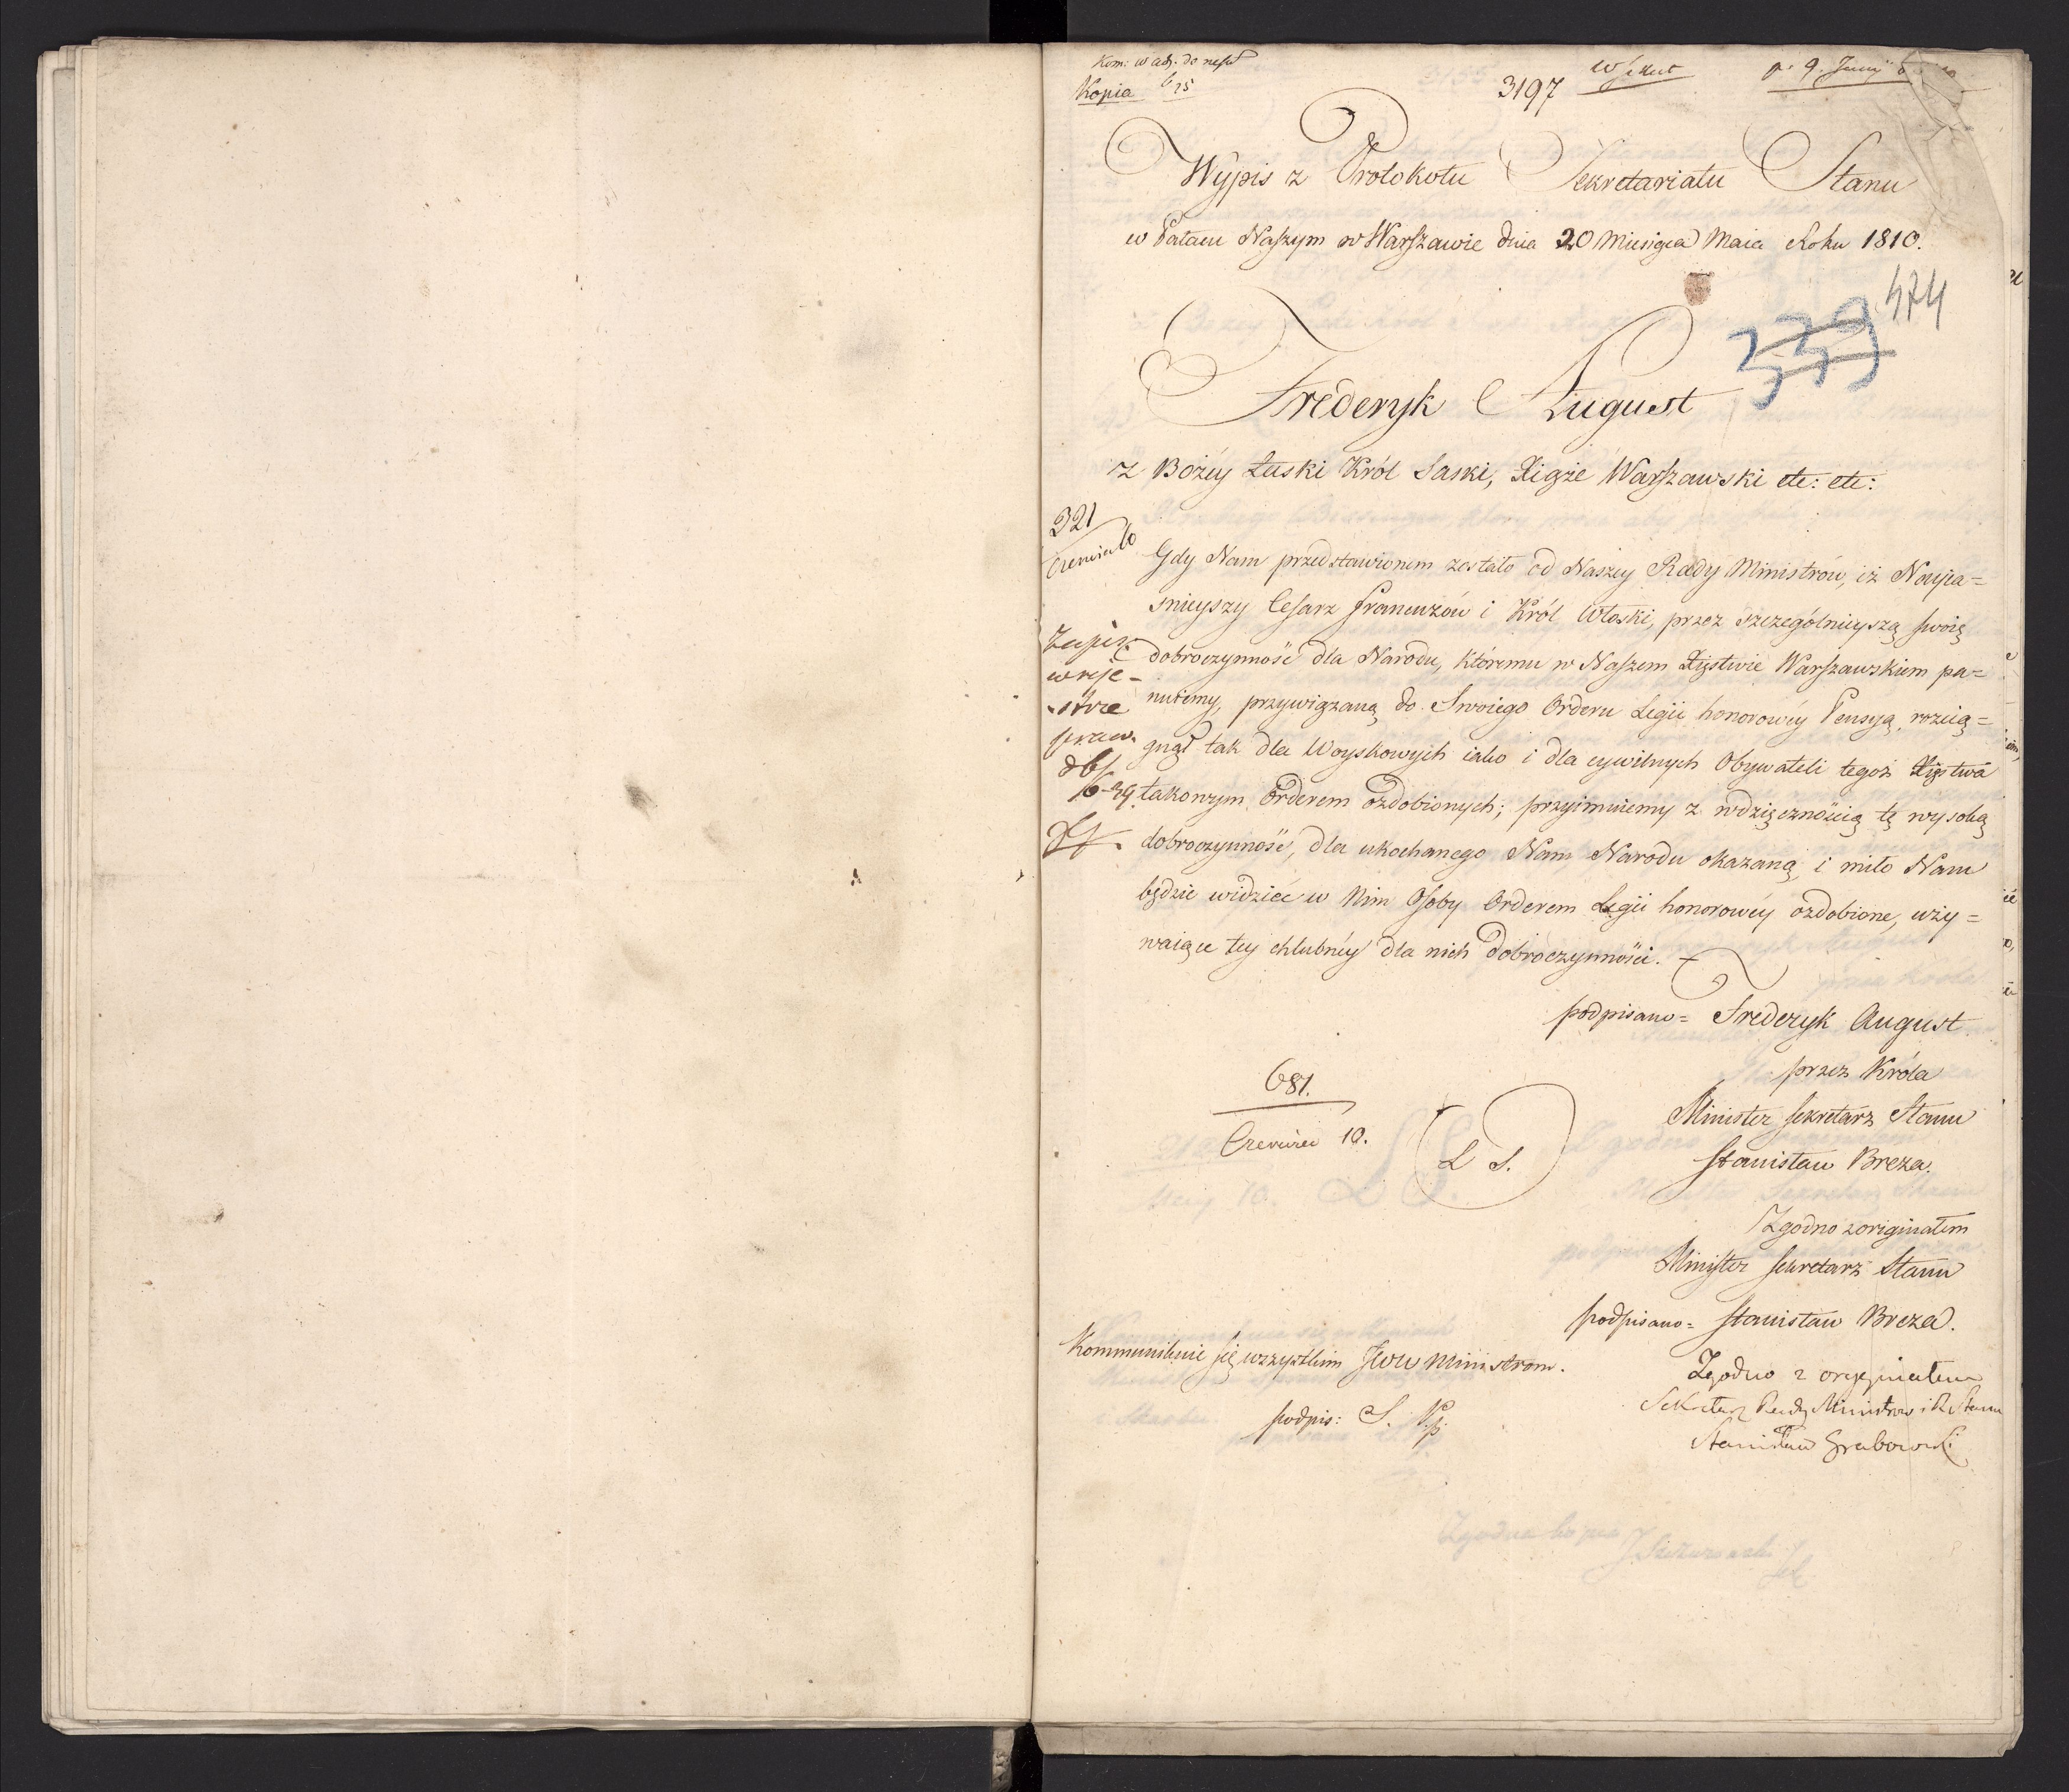 Kopia
3197
Wypis z Protokołu Sekretariatu Stanu
w Pałacu Naszym w Warszawie dnia 20 Miesiąca Maia Roku 1810.
474
339
Frederyk August
z Bożéy Łaski Król Saski, Xiąże Warszawski etc: etc:
321
Gdy Nam przedstawionem zostało od Naszey Rady Ministrów, iż Nayia=
śnieyszy Cesarz francuzów i Król Włoski, przez szczególnieyszą swoię
dobroczynność dla Narodu, któremu w Naszem Xięstwie Warszawskiem pa=
nuiemy, przywiązaną do Swoiego Orderu Legii honorowéy Pensyą, rozcią=
gnął tak dla Woyskowych iako i dla cywilnych Obywateli tegoż Xięstwa
takowym Orderem ozdobionych; przyimuiemy z wdzięcznością tę wysoką
dobroczynność, dla ukochanego Nam Narodu okazaną, i miło Nam
będzie widzieć w Nim Osoby Orderem Legii honorowéy ozdobione, uży=
waiące téy chlubnéy dla nich dobroczynności.
podpisano= Frederyk August
przez Króla
Minister Sekretarz Stanu
Stanisław Breza.
681.
Czerwiec 10.
L S.
Zgodno z originałem
Minister Sekretarz Stanu
podpisano= Stanisław Breza.
Kommunikuie się wszystkim JWW Ministrom.
podpis: S. P.
Zgodno z oryginałem
Sekretarz Rady Ministrów i R Stanu
Stanisław Grabowski